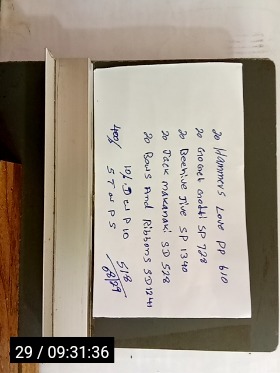 20 Hammers Love PP 610
20 Grognet Gnotti SP 728
20 Beehive Jive SP 1340
20 Jack makanaki SD 528
20 Bows And Ribbons SD1241
10/ D W P 10
400/
S T N P S
518
29 / 09:31:36